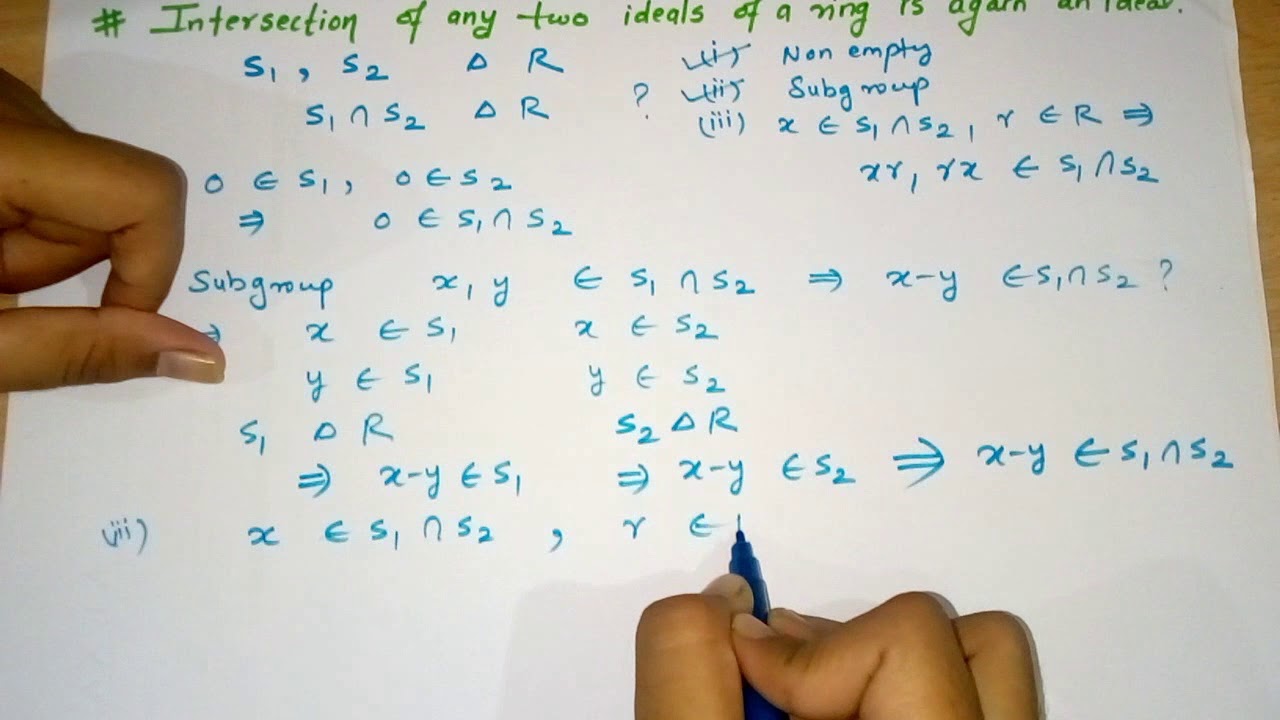 # Intersection of any two ideals of a ring is again an ideal.
S₁, S₂ Δ R (i) Non empty
S₁ ∩ S₂ Δ R ? (ii) Subgroup
(iii) x ∈ S₁ ∩ S₂, r ∈ R ⇒
xr, rx ∈ S₁ ∩ S₂
0 ∈ S₁, 0 ∈ S₂
⇒ 0 ∈ S₁ ∩ S₂
Subgroup x, y ∈ S₁ ∩ S₂ ⇒ x-y ∈ S₁ ∩ S₂ ?
⇒ x ∈ S₁ x ∈ S₂
y ∈ S₁ y ∈ S₂
S₁ Δ R S₂ Δ R
⇒ x-y ∈ S₁ ⇒ x-y ∈ S₂ ⇒ x-y ∈ S₁ ∩ S₂
(iii) x ∈ S₁ ∩ S₂ , r ∈